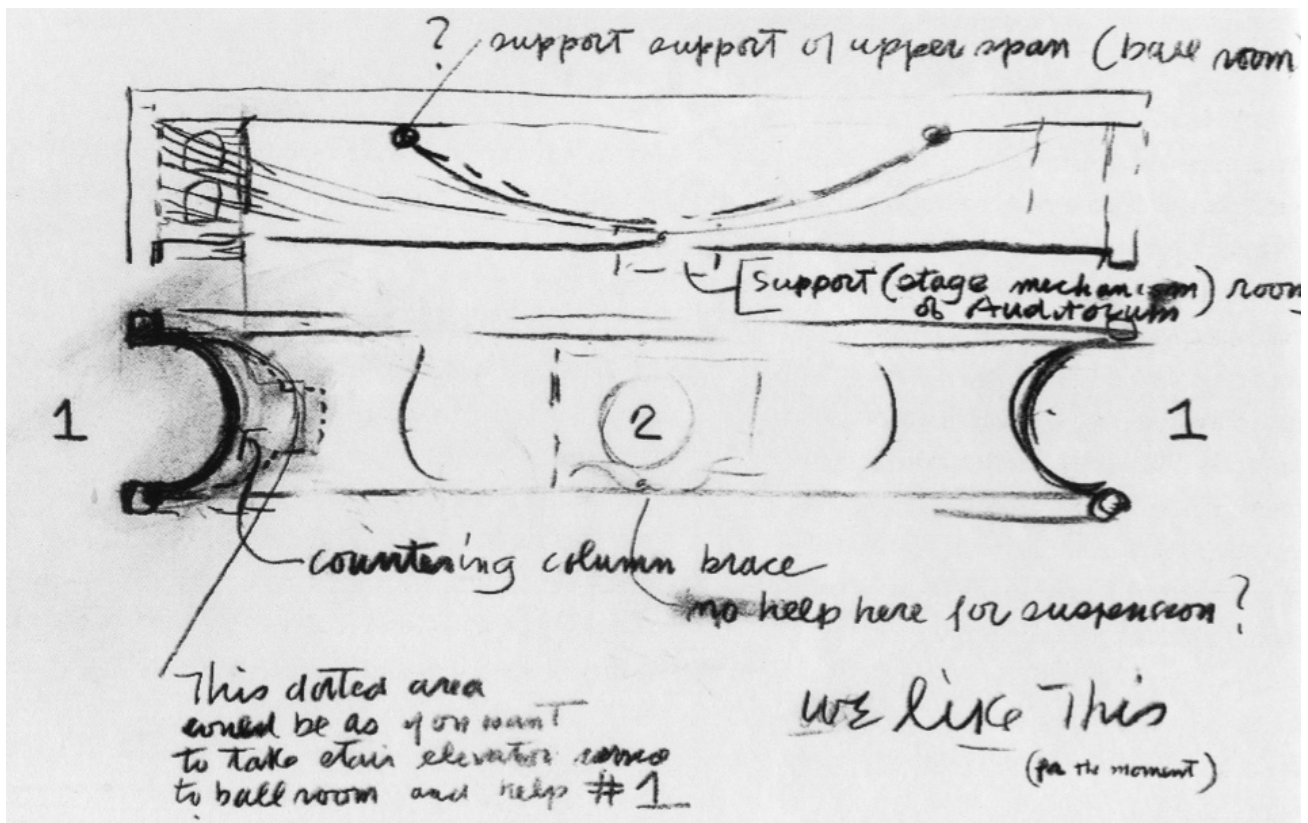 ? support support of upper span (ball room
[Support (stage mechanism) room
of Auditorium
1
2
1
countering column brace
no help here for suspension?
This dotted area
would be as you want
to take stair elevator
to ball room and help #1
we like This
(for the moment)